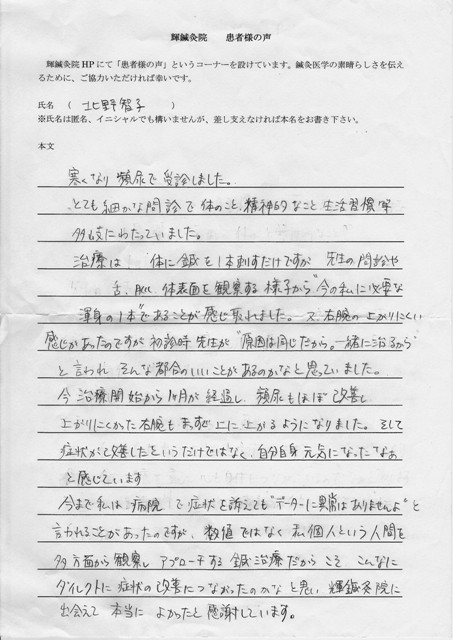 輝鍼灸院　　患者様の声
輝鍼灸院 HP にて「患者様の声」というコーナーを設けています。鍼灸医学の素晴らしさを伝え
るために、ご協力いただければ幸いです。
氏名　（　北野智子　　）
※氏名は匿名、イニシャルでも構いませんが、差し支えなければ本名をお書き下さい。
本文
寒くなり 頻尿で 受診しました。
とても細かな問診で 体のこと、精神的なこと 生活習慣等
多岐にわたっていました。
治療は 体に鍼を1本刺すだけですが 先生の問診や
舌、脈、体表面を観察する様子から"今の私に必要な
渾身の1本"であることが感じ取れました。又、右腕の上がりにくい
感じがあったのですが 初診時 先生が"原因は同じだから。一緒に治るから"
と言われ そんな都合のいいことがあるのかなと思っていました。
今 治療開始から1ヶ月が経過し 頻尿もほぼ改善し
上がりにくかった右腕も まっすぐ上に上がるようになりました。そして
症状が改善したというだけではなく、自分自身 元気になったなぁ
と感じています
今まで私は 病院 で症状を訴えても"データーに異常はありませんよ"と
言われることがあったのですが、数値ではなく 私個人という人間を
多方面から観察し アプローチする 鍼治療だからこそ こんなに
ダイレクトに症状の改善につながったのかなと思い 輝鍼灸院に
出会えて 本当に よかったと 感謝しています。